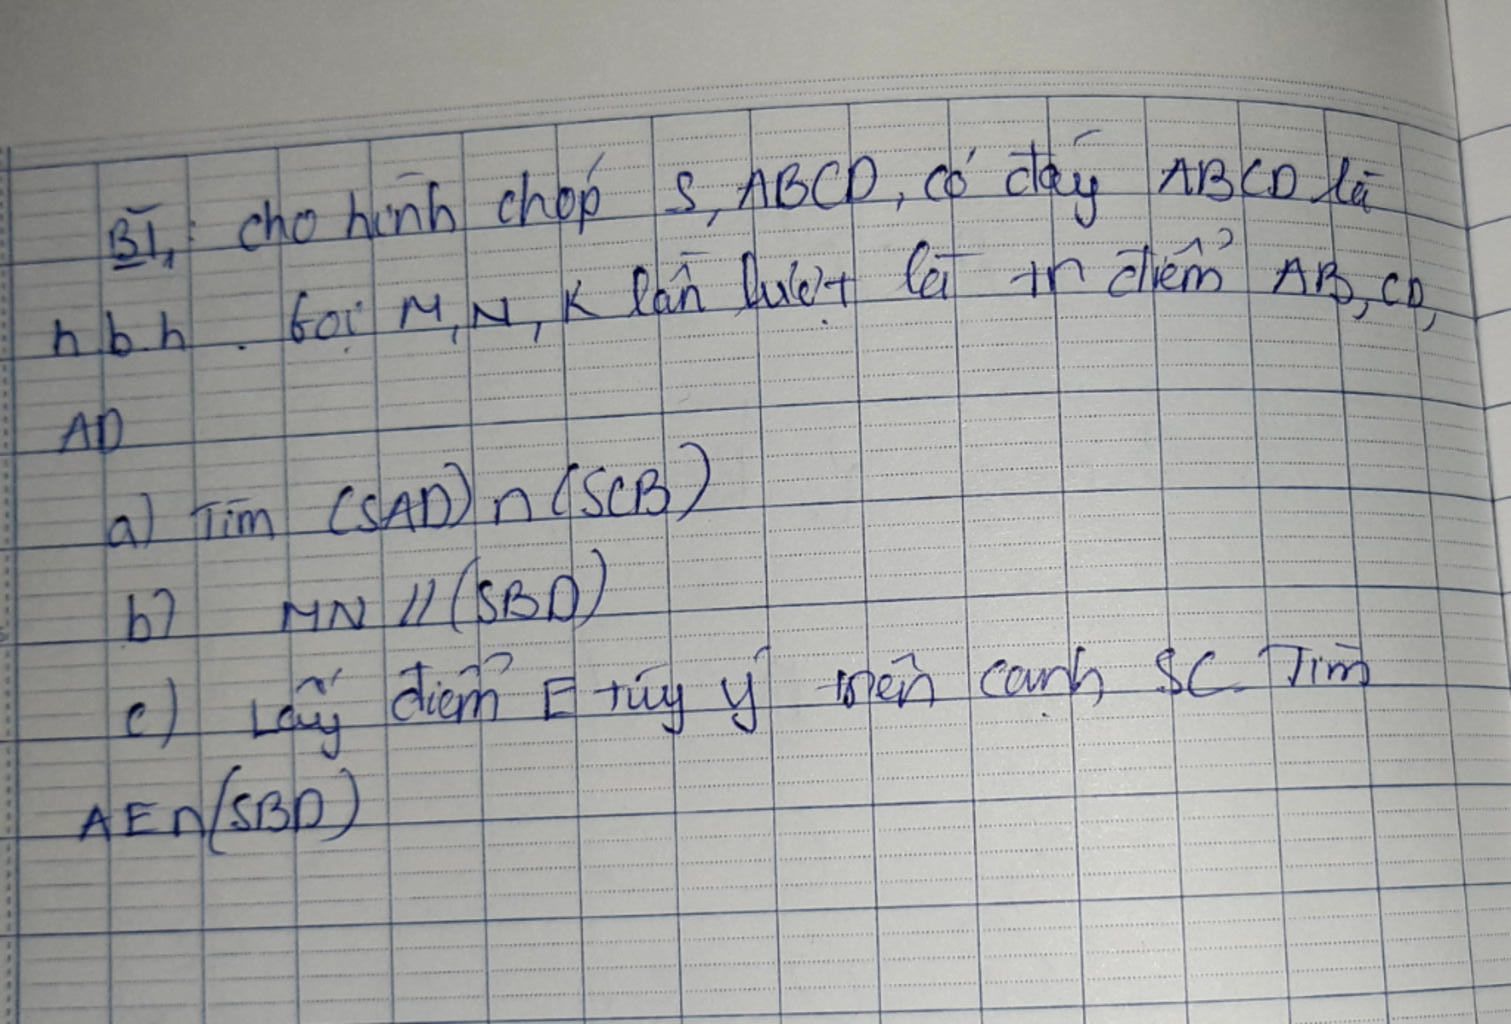 BT: cho hình chóp S, ABCD, có đáy ABCD là
h b h . Gọi M, N, K lần lượt là tr điểm AB, CD,
AD
a) Tìm (SAD) ∩ (SCB)
b) MN // (SBD)
c) Lấy điểm E tùy ý trên cạnh SC. Tìm
AE ∩ (SBD)